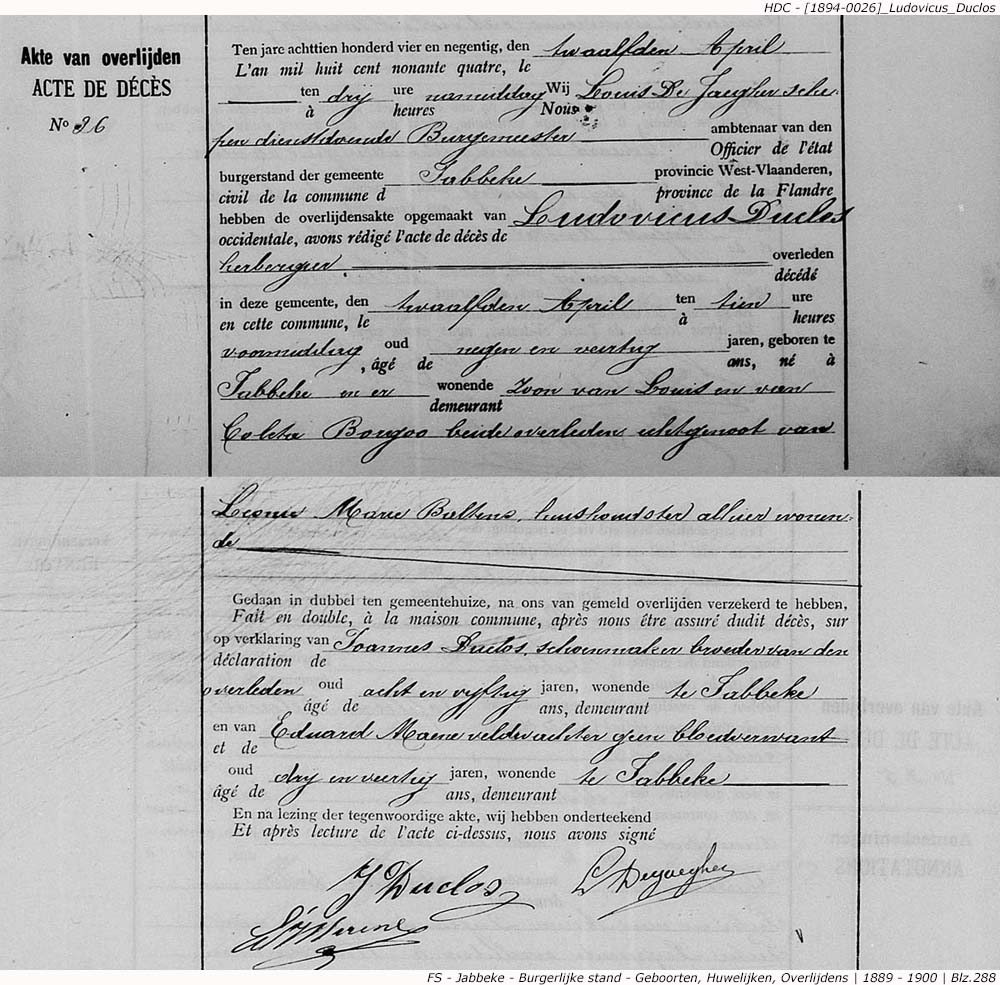 HDC - [1894-0026]_Ludovicus_Duclos
Akte van overlijden
ACTE DE DÉCÈS
No 26
Ten jare achttien honderd vier en negentig, den twaalfden April
L'an mil huit cent nonante quatre, le
ten dry ure namiddag Wij Louis De Jaegher sche-
à heures Nous
pen dienstdoende Burgemeester ambtenaar van den
Officier de l'état
burgerstand der gemeente Jabbeke provincie West-Vlaanderen,
civil de la commune d province de la Flandre
hebben de overlijdensakte opgemaakt van Ludovicus Duclos
occidentale, avons rédigé l'acte de décès de
herbergier overleden
décédé
in deze gemeente, den twaalfden April ten tien ure
en cette commune, le à heures
voormiddag oud negen en veertig jaren, geboren te
, âgé de ans, né à
Jabbeke en er wonende Zoon van Louis en van
demeurant
Coleta Bougoo beide overleden echtgenoot van
Marie Baltens, huishoudster alhier wonen-
de
Gedaan in dubbel ten gemeentehuize, na ons van gemeld overlijden verzekerd te hebben,
Fait en double, à la maison commune, après nous être assuré dudit décès, sur
op verklaring van Joannes Duclos, schoenmaker broeder van den
déclaration de
overleden oud acht en vyftig jaren, wonende te Jabbeke
âgé de ans, demeurant
en van Eduard Maene veldwachter geen bloedverwant
et de
oud dry en veertig jaren, wonende te Jabbeke
âgé de ans, demeurant
En na lezing der tegenwoordige akte, wij hebben onderteekend
Et après lecture de l'acte ci-dessus, nous avons signé
J Duclos L Dejaegher
FS - Jabbeke - Burgerlijke stand - Geboorten, Huwelijken, Overlijdens | 1889 - 1900 | Blz.288